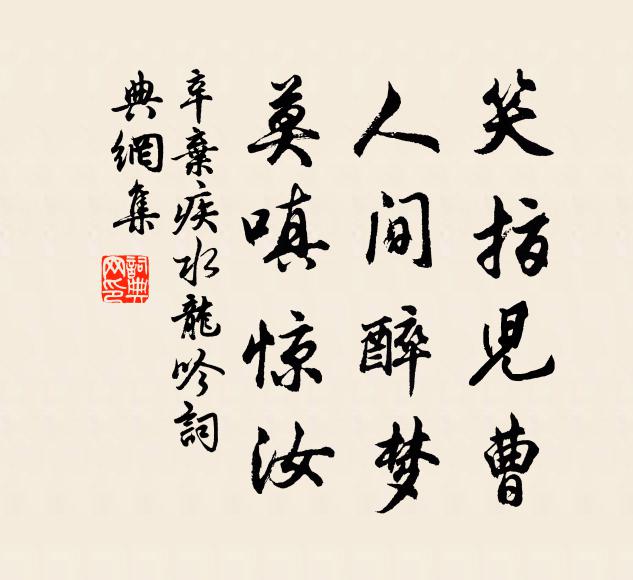 笑指児曹
人间醉梦
莫嗔惊汝
辛棄疾水龍吟詞
典網集
詞典
网印